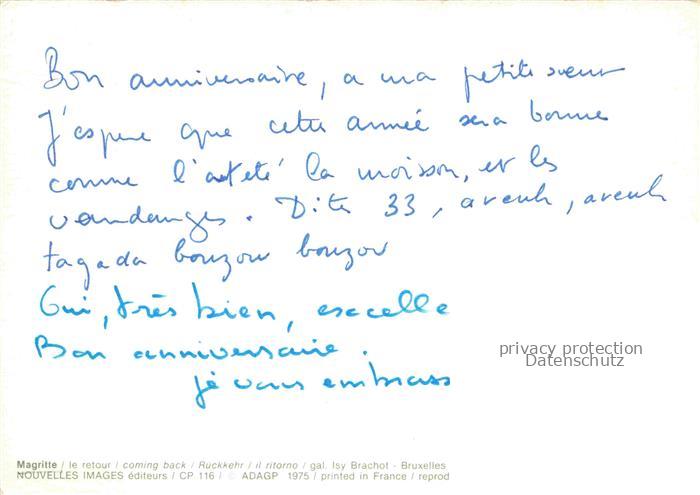 Bon anniversaire, a ma petite sœur
J'espere que cette année sera bonne
comme l'a été la moisson, et les
vendanges. Dites 33, areuh, areuh
tagada bouzou bouzou
Oui, très bien, excelle
Bon anniversaire.
je vous embrass
privacy protection
Datenschutz
Magritte / le retour / coming back / Rückkehr / il ritorno / gal. Isy Brachot - Bruxelles
NOUVELLES IMAGES éditeurs / CP 116 / © ADAGP 1975 / printed in France / reprod